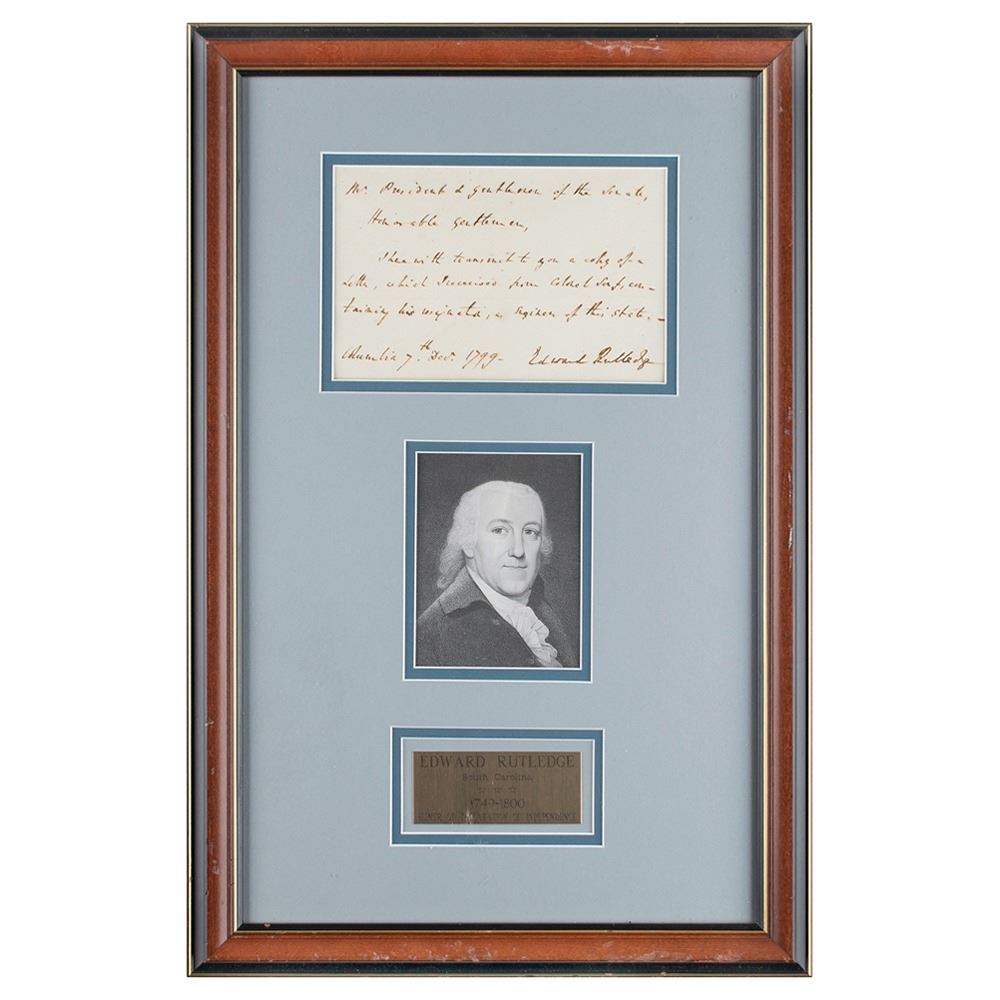 Mr. President & gentlemen of the Senate,
Honorable gentlemen,
I herewith transmit to you a copy of a
Letter, which I received from Colonel Senf, con-
taining his resignation, as Engineer of this State. —
Columbia 7th. Decr. 1799 - Edward Rutledge
EDWARD RUTLEDGE
South Carolina
☆ ☆ ☆
1749-1800
SIGNER OF DECLARATION OF INDEPENDENCE